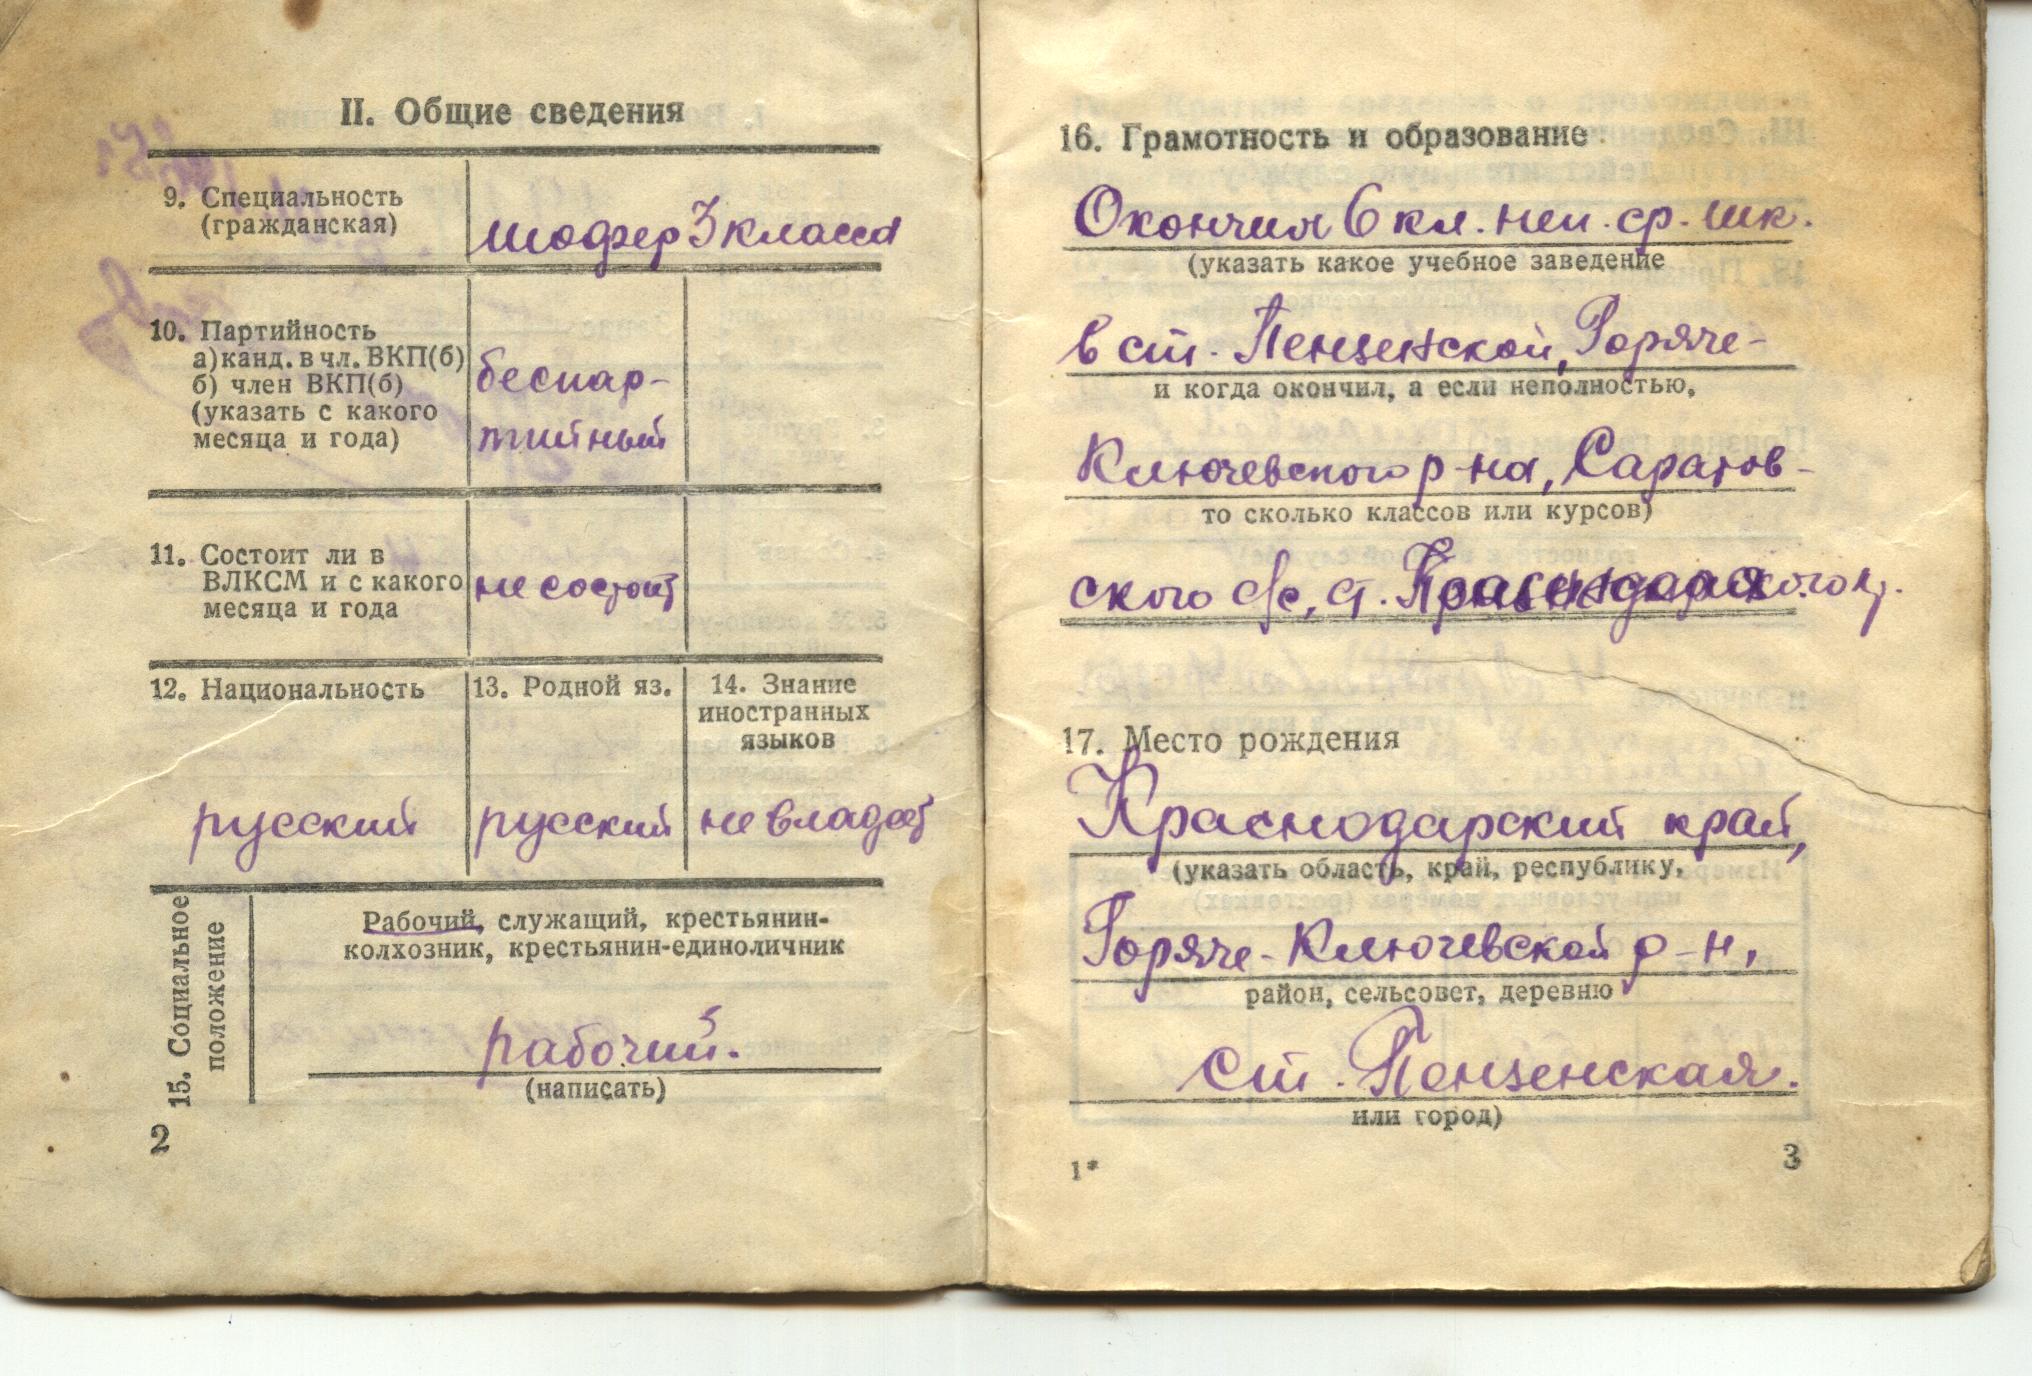 II. Общие сведения
9. Специальность
(гражданская)
шофер 3 класса
10. Партийность
а) канд. в чл. ВКП(б)
б) член ВКП(б)
(указать с какого
месяца и года)
беспар-
тийный
11. Состоит ли в
ВЛКСМ и с какого
месяца и года
не состоит
12. Национальность
русский
13. Родной яз.
русский
14. Знание
иностранных
языков
не владеет
15. Социальное
положение
Рабочий, служащий, крестьянин-
колхозник, крестьянин-единоличник
рабочий.
(написать)
2
16. Грамотность и образование
Окончил 6 кл. неп. ср. шк.
(указать какое учебное заведение
в ст. Пензенской, Горяче-
и когда окончил, а если неполностью,
Ключевского р-на, Саратов-
то сколько классов или курсов)
ского с/с, ст. Краснодарского кр.
17. Место рождения
Краснодарский край,
(указать область, край, республику,
Горяче-Ключевской р-н,
район, сельсовет, деревню
ст. Пензенская.
или город)
1*
3